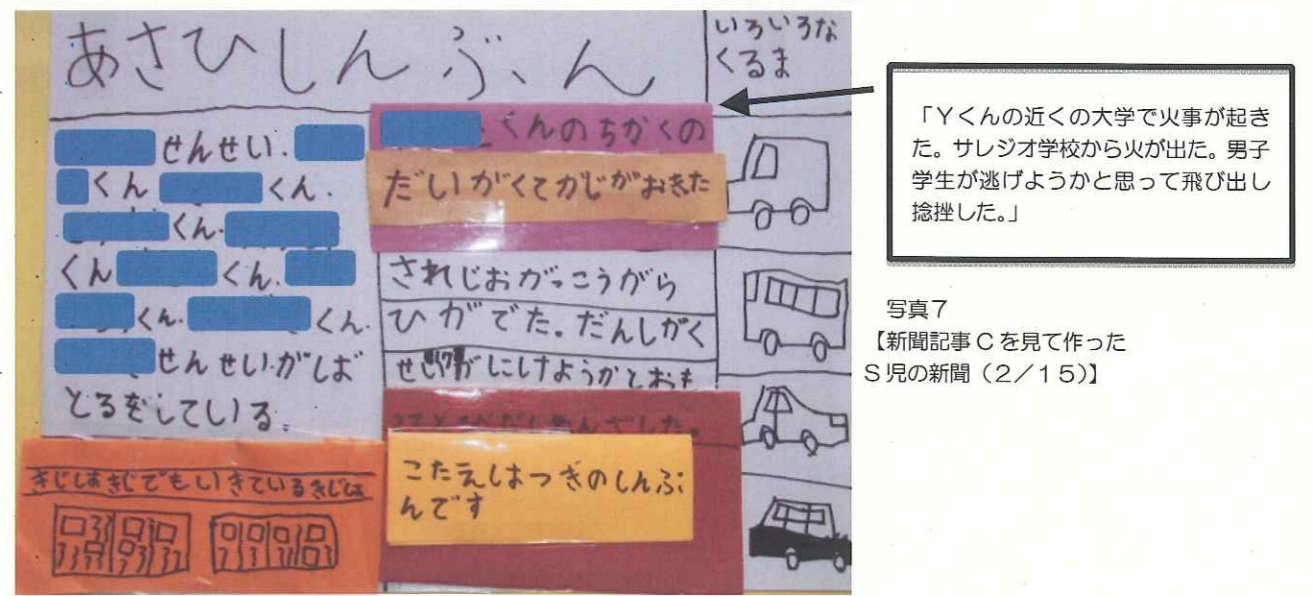 あさひしんぶん
いろいろな
くるま
せんせい.
くん くん.
くん.
くん くん.
くん. くん.
せんせい.がしば
とるをしている。
くんのちかくの
だいがくてかじがおきた
されじおがっこうがら
ひがでた。だんしがく
せいがにけようかとおも
ってとびだしねんざした。
きじはきじでもいきているきじは
こたえはつぎのしんぶ
んです
「Yくんの近くの大学で火事が起き
た。サレジオ学校から火が出た。男子
学生が逃げようかと思って飛び出し
捻挫した。」
写真7
【新聞記事Cを見て作った
S児の新聞（2／15）】